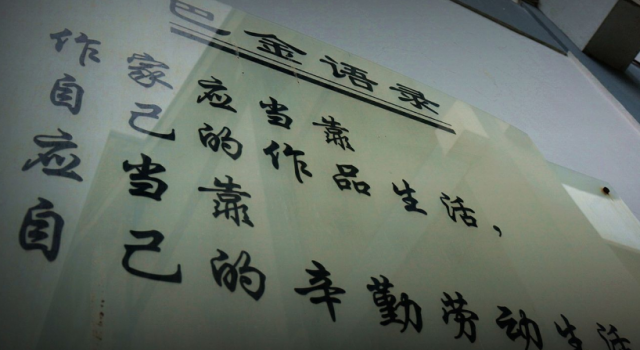 巴金语录
作家应当靠
自己的作品生活，
应当靠
自己的辛勤劳动生活